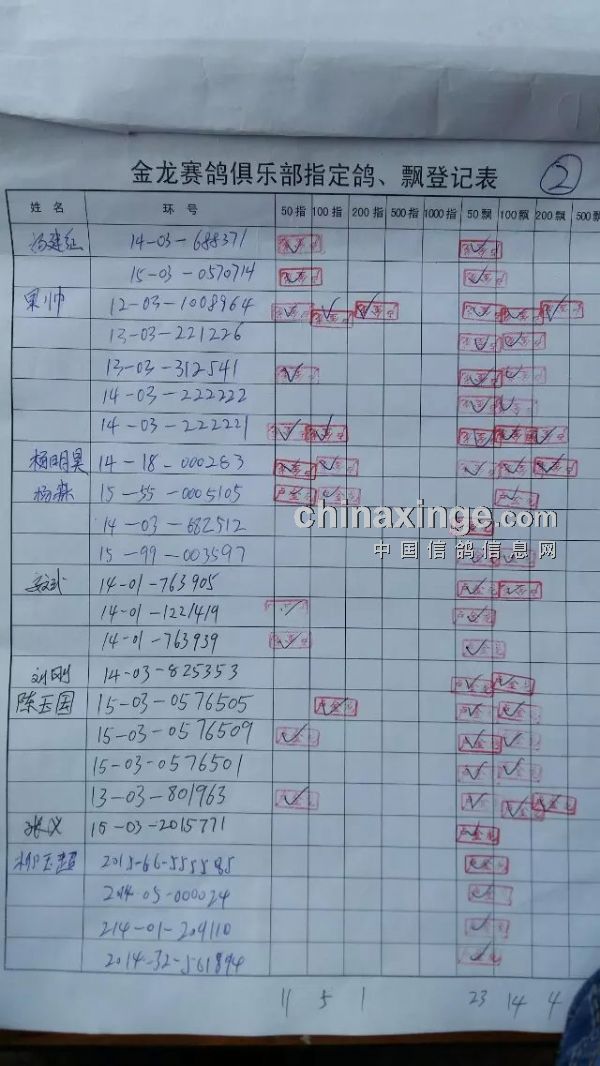 金龙赛鸽俱乐部指定鸽、飘登记表 2
姓名 环号 50指 100指 200指 500指 1000指 50飘 100飘 200飘 500飘
冯建红 14-03-688371
15-03-0570714
果帅 12-03-1008964
13-03-221226
13-03-312541
14-03-222222
14-03-222221
杨明昊 14-18-000263
杨森 15-55-0005105
14-03-682512
15-99-003597
14-01-763905
14-01-1221419
14-01-763939
刘刚 14-03-825353
陈玉国 15-03-0576505
15-03-0576509
15-03-0576501
13-03-801963
张义 15-03-2015771
柳玉超 2015-66-555585
214-05-000024
214-01-209110
2014-32-561894
11 5 1 23 14 4
chinaxinge.com
中国信鸽信息网